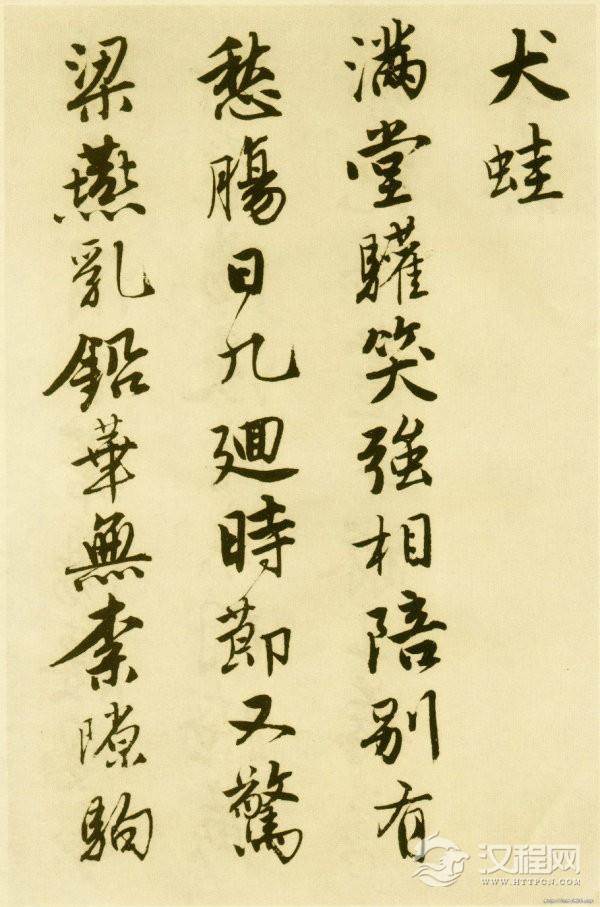 犬蛙
滿堂驩笑強相陪別有
愁腸日九廻時節又驚
梁燕乳鉛華無柰隙駒
汉程网
WWW.HTTPCN.COM